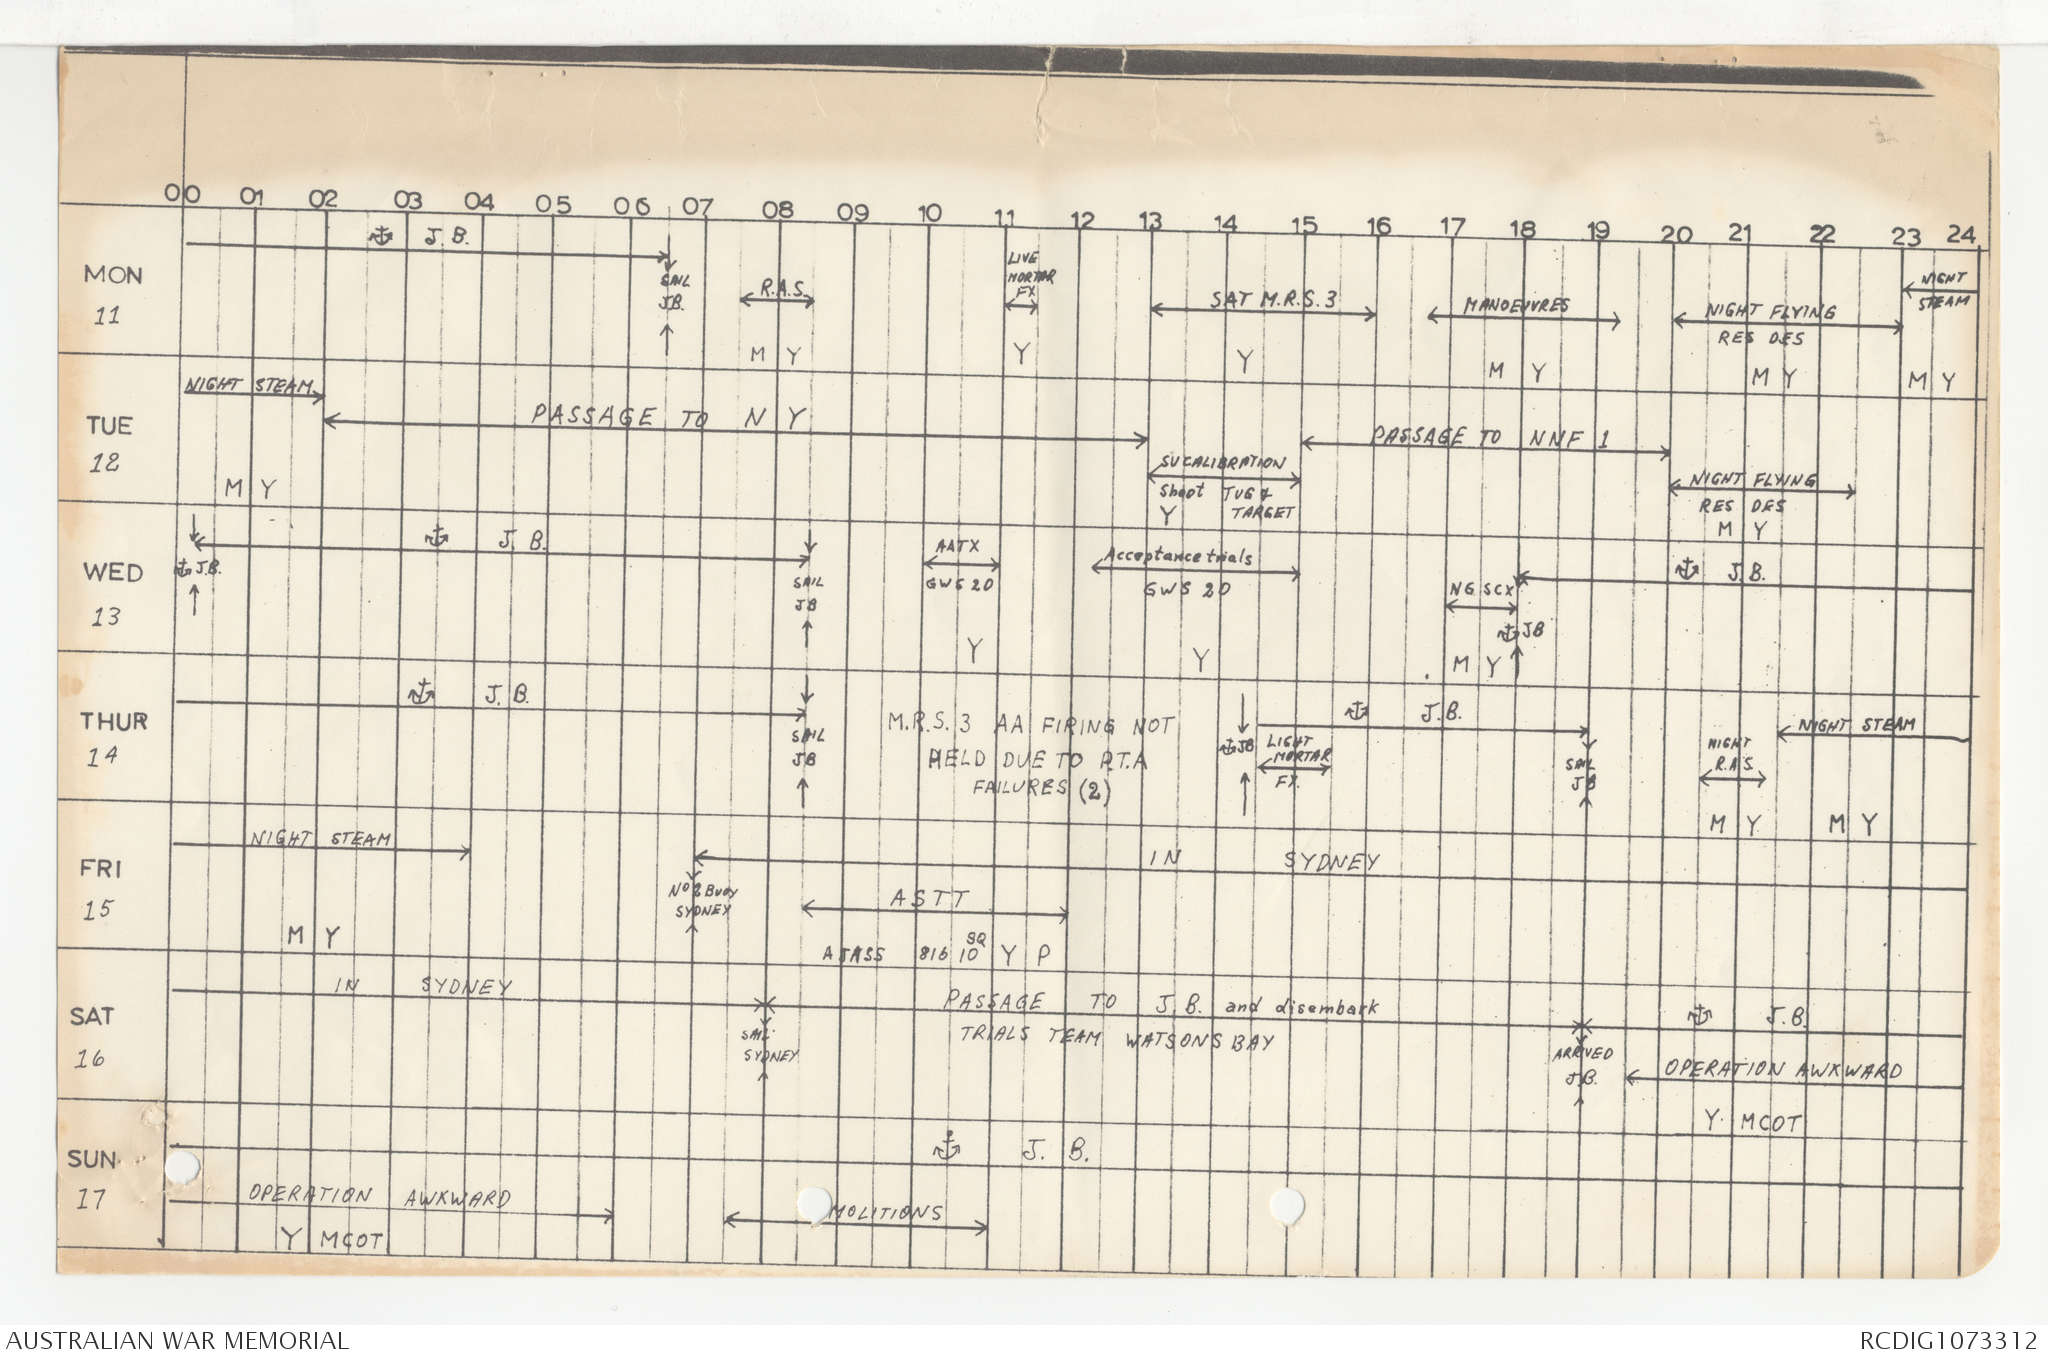 00 01 02 03 04 05 06 07 08 09 10 11 12 13 14 15 16 17 18 19 20 21 22 23 24
MON
11
J.B.
SAIL
J.B.
R.A.S.
M Y
LIVE
MORTAR
FX
Y
SAT M.R.S. 3
Y
MANOEUVRES
M Y
NIGHT FLYING
RES DES
M Y
NIGHT
STEAM
M Y
TUE
12
NIGHT STEAM
M Y
PASSAGE TO N Y
SU CALIBRATION
Shoot TUG &
Y TARGET
PASSAGE TO NNF 1
NIGHT FLYING
RES DES
M Y
WED
13
J.B.
J.B.
SAIL
JB
AATX
GWS 20
Y
Acceptance trials
GWS 20
Y
NG SCX
JB
M Y
J.B.
THUR
14
J.B.
SAIL
JB
M.R.S. 3 AA FIRING NOT
HELD DUE TO P.T.A
FAILURES (2)
JB
J.B.
LIGHT
MORTAR
FX.
SAIL
JB
NIGHT
R.A.S.
M Y
NIGHT STEAM
M Y
FRI
15
NIGHT STEAM
M Y
No 2 Buoy
SYDNEY
IN SYDNEY
ASTT
AJASS 816 SQ 10 Y P
SAT
16
IN SYDNEY
SAIL
SYDNEY
PASSAGE TO J.B. and disembark
TRIALS TEAM WATSONS BAY
ARRIVED
J.B.
J.B.
OPERATION AWKWARD
Y MCOT
SUN
17
J. B.
OPERATION AWKWARD
Y MCOT
MOLITIONS
AUSTRALIAN WAR MEMORIAL
RCDIG1073312